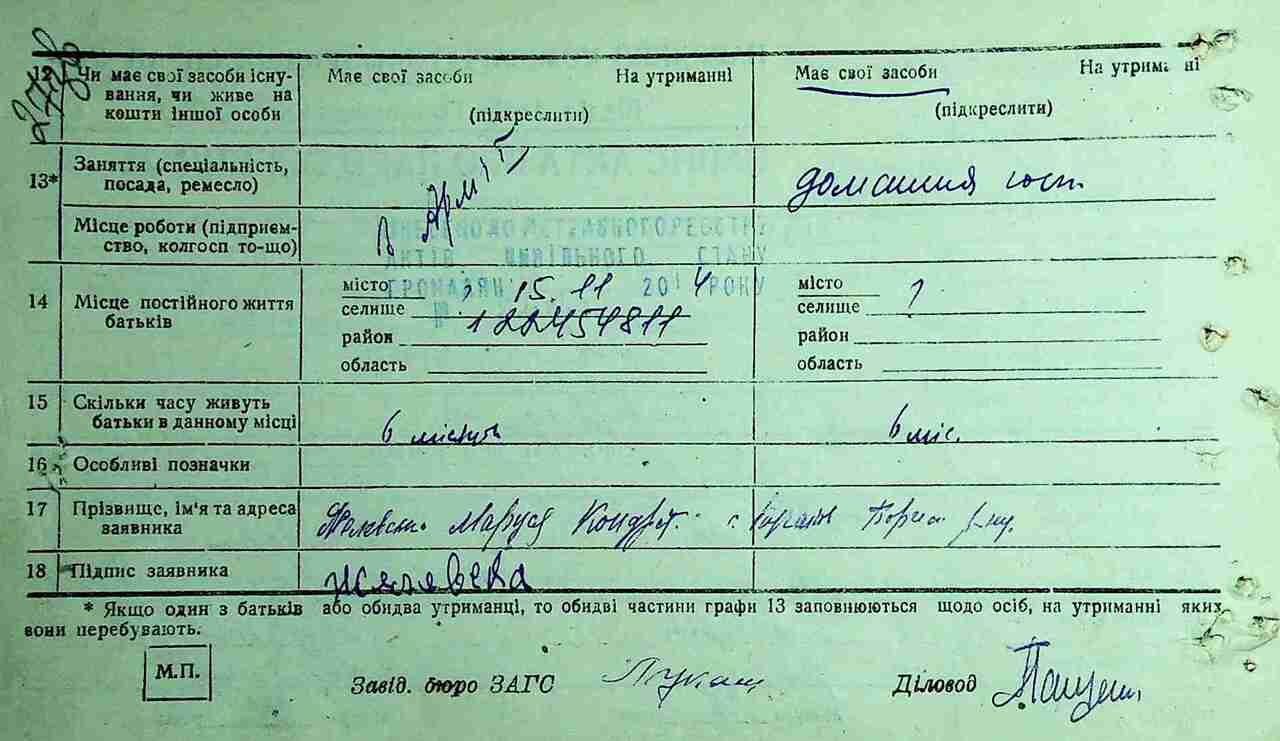 12 Чи має свої засоби існу-
вання, чи живе на
кошти іншої особи
Має свої засоби На утриманні
(підкреслити)
Має свої засоби На утриманні
(підкреслити)
13* Заняття (спеціальність,
посада, ремесло)
в Армії
домашня госп
Місце роботи (підприєм-
ство, колгосп то-що)
АКТІВ ЦИВІЛЬНОГО СТАНУ
ГРОМАДЯН 15.11 2014 РОКУ
№ 122454811
14 Місце постійного життя
батьків
місто ?
селище
район
область
місто ?
селище
район
область
15 Скільки часу живуть
батьки в данному місці
6 місяців
6 міс.
16 Особливі позначки
17 Прізвище, ім'я та адреса
заявника
Маруся Кондрат.
18 Підпис заявника
* Якщо один з батьків або обидва утриманці, то обидві частини графи 13 заповнюються щодо осіб, на утриманні яких
вони перебувають.
М.П.
Завід. бюро ЗАГС
Діловод